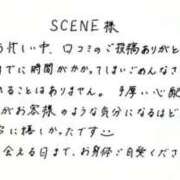 SCENE様
お忙しい中、口コミのご投稿ありがと
までに時間がかかってしまいごめんなさ
れることはありません。手厚い心配
がお客様のような気分になるほど
に嬉しかったです
会える日まで、お身体ご自愛くださ